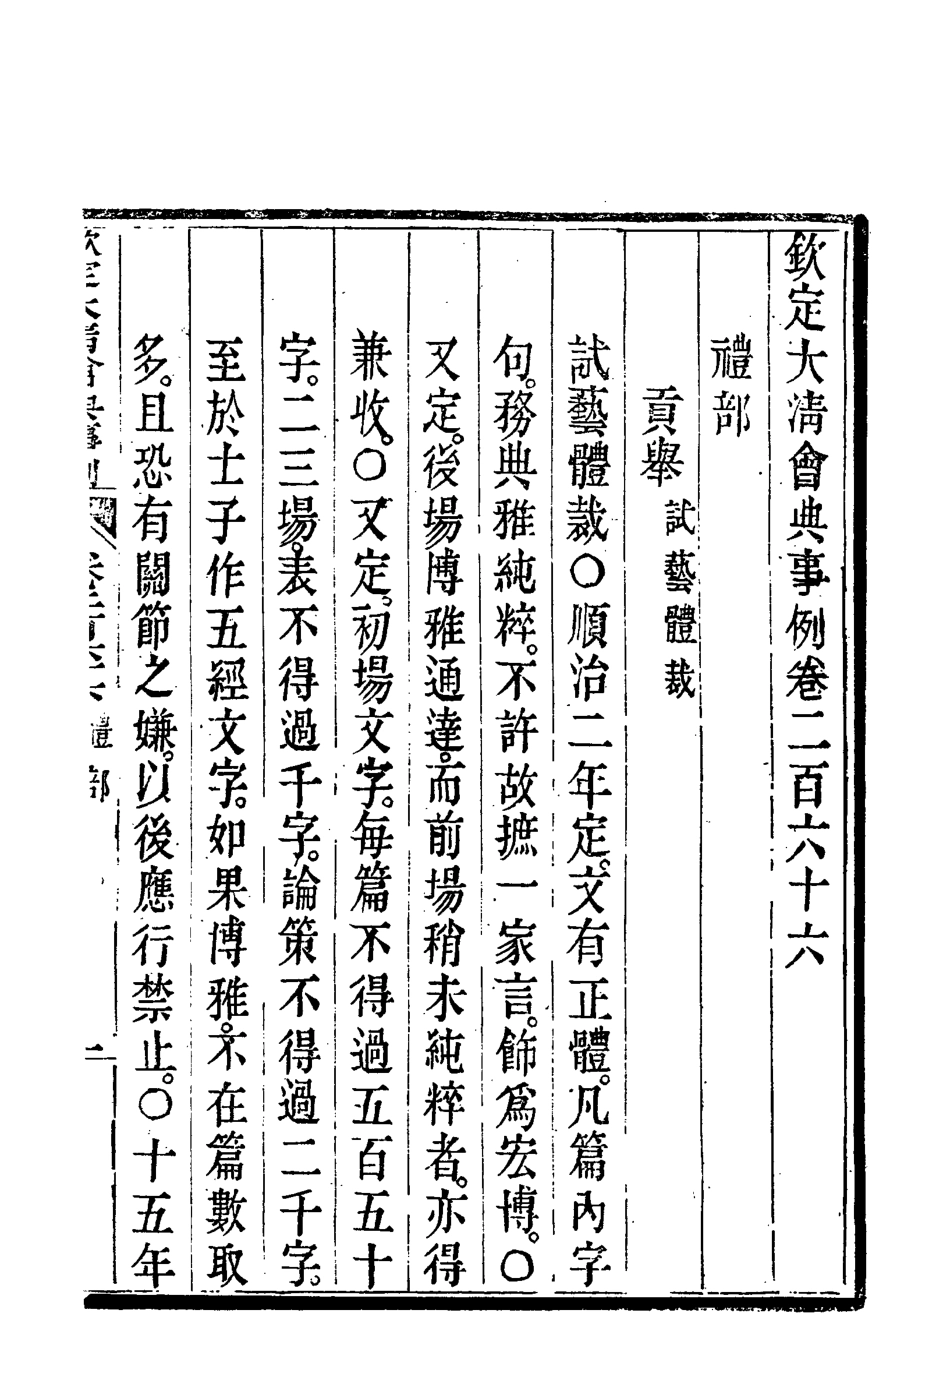 欽定大淸會典事例卷二百六十六
禮部
貢舉 試藝體裁
試藝體裁〇順治二年定。文有正體。凡篇內字
句。務典雅純粹。不許故摭一家言。飾爲宏博。〇
又定。後場博雅通達。而前場稍未純粹者。亦得
兼收。〇又定。初場文字。每篇不得過五百五十
字。二三場。表不得過千字。論策不得過二千字。
至於士子作五經文字。如果博雅。不在篇數取
多。且恐有關節之嫌。以後應行禁止。〇十五年